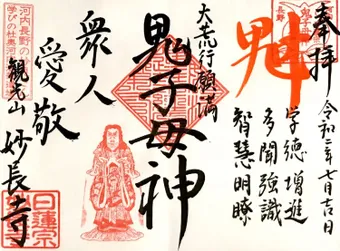 奉拝
令和二年七月吉日
学徳増進
多聞強識
智慧明瞭
大荒行願満
鬼子母神
衆人
愛敬
河内長野の
学びの杜奥河
観光山
妙長寺
日蓮宗